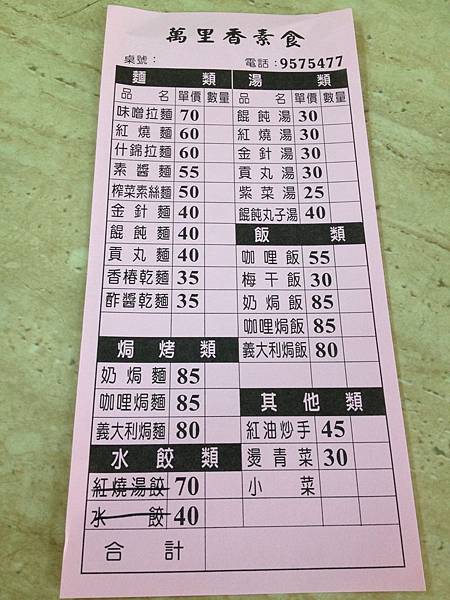 萬里香素食
桌號： 電話：9575477
麵類 湯類
品名 單價 數量 品名 單價 數量
味噌拉麵 70 餛飩湯 30
紅燒麵 60 紅燒湯 30
什錦拉麵 60 金針湯 30
素醬麵 55 貢丸湯 30
榨菜素絲麵 50 紫菜湯 25
金針麵 40 餛飩丸子湯 40
餛飩麵 40 飯類
貢丸麵 40 咖哩飯 55
香椿乾麵 35 梅干飯 30
酢醬乾麵 35 奶焗飯 85
咖哩焗飯 85
焗烤類 義大利焗飯 80
奶焗麵 85
咖哩焗麵 85 其他類
義大利焗麵 80 紅油炒手 45
水餃類 燙青菜 30
紅燒湯餃 70 小菜
水餃 40
合計